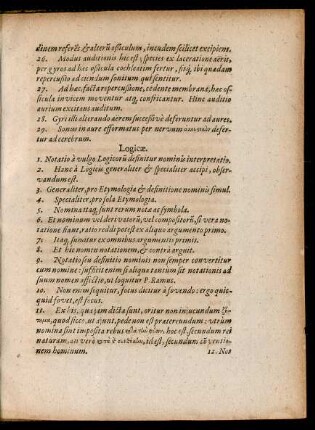 ctivem referēs & alterū osiculum, incudem scilicet excipiens.
26. Modus auditionis hic est, species ex laceratione aëris,
per gyros ad hæc osicula cochleatim fertur, fitq́ ibi quædam
repercussio ad ciendum sonitum qui sentitur.
27. Ad hæc, facta repercussione, cedente membranâ, hæc os-
sicula invicem moventur atq́ conflictantur. Hinc auditio
aurium excitatur.
28. Gyri isti alterando aërem successivè deferuntur ad aures.
29. Sonus in aure efformatus per nervum defer-
tur ad cerebrum.
Logicæ.
1. Notatio à vulgo Logicorū definitur nominis interpretatio.
2. Hanc à Logicis generaliter & specialiter accipi, obser-
vandum est.
3. Generaliter, pro Etymologia & definitione nominis simul.
4. Specialiter, pro sola Etymologia.
5. Nomina itaq́ sunt rerum notæ ac symbola.
6. Et nominum vel derivatorū, vel compositorū, si vera no-
tatione fiant, ratio reddi potest ex aliquo argumento primo.
7. Itaq́ sumitur ex omnibus argumentis primis.
8. Et hîc nomen notationem, & contrà arguit.
9. Notatio seu definitio nominis non semper convertitur
cum nomine: sufficit enim si aliqua tantum sit notationis ad
suum nomen affectio, ut loquitur P. Ramus.
10. Non enim sequitur, focus dicitur à fovendo: ergo quic-
quid fovet, est focus.
11. Ex his, quæ jam dicta sunt, oritur non injucundum
quod sicco, ut ajunt, pede non est prætereundum: utrùm
nomina sint imposita rebus hoc est, secundum rei
naturam, an verò id est, secundum cū ventio-
nem hominum. 12. Not